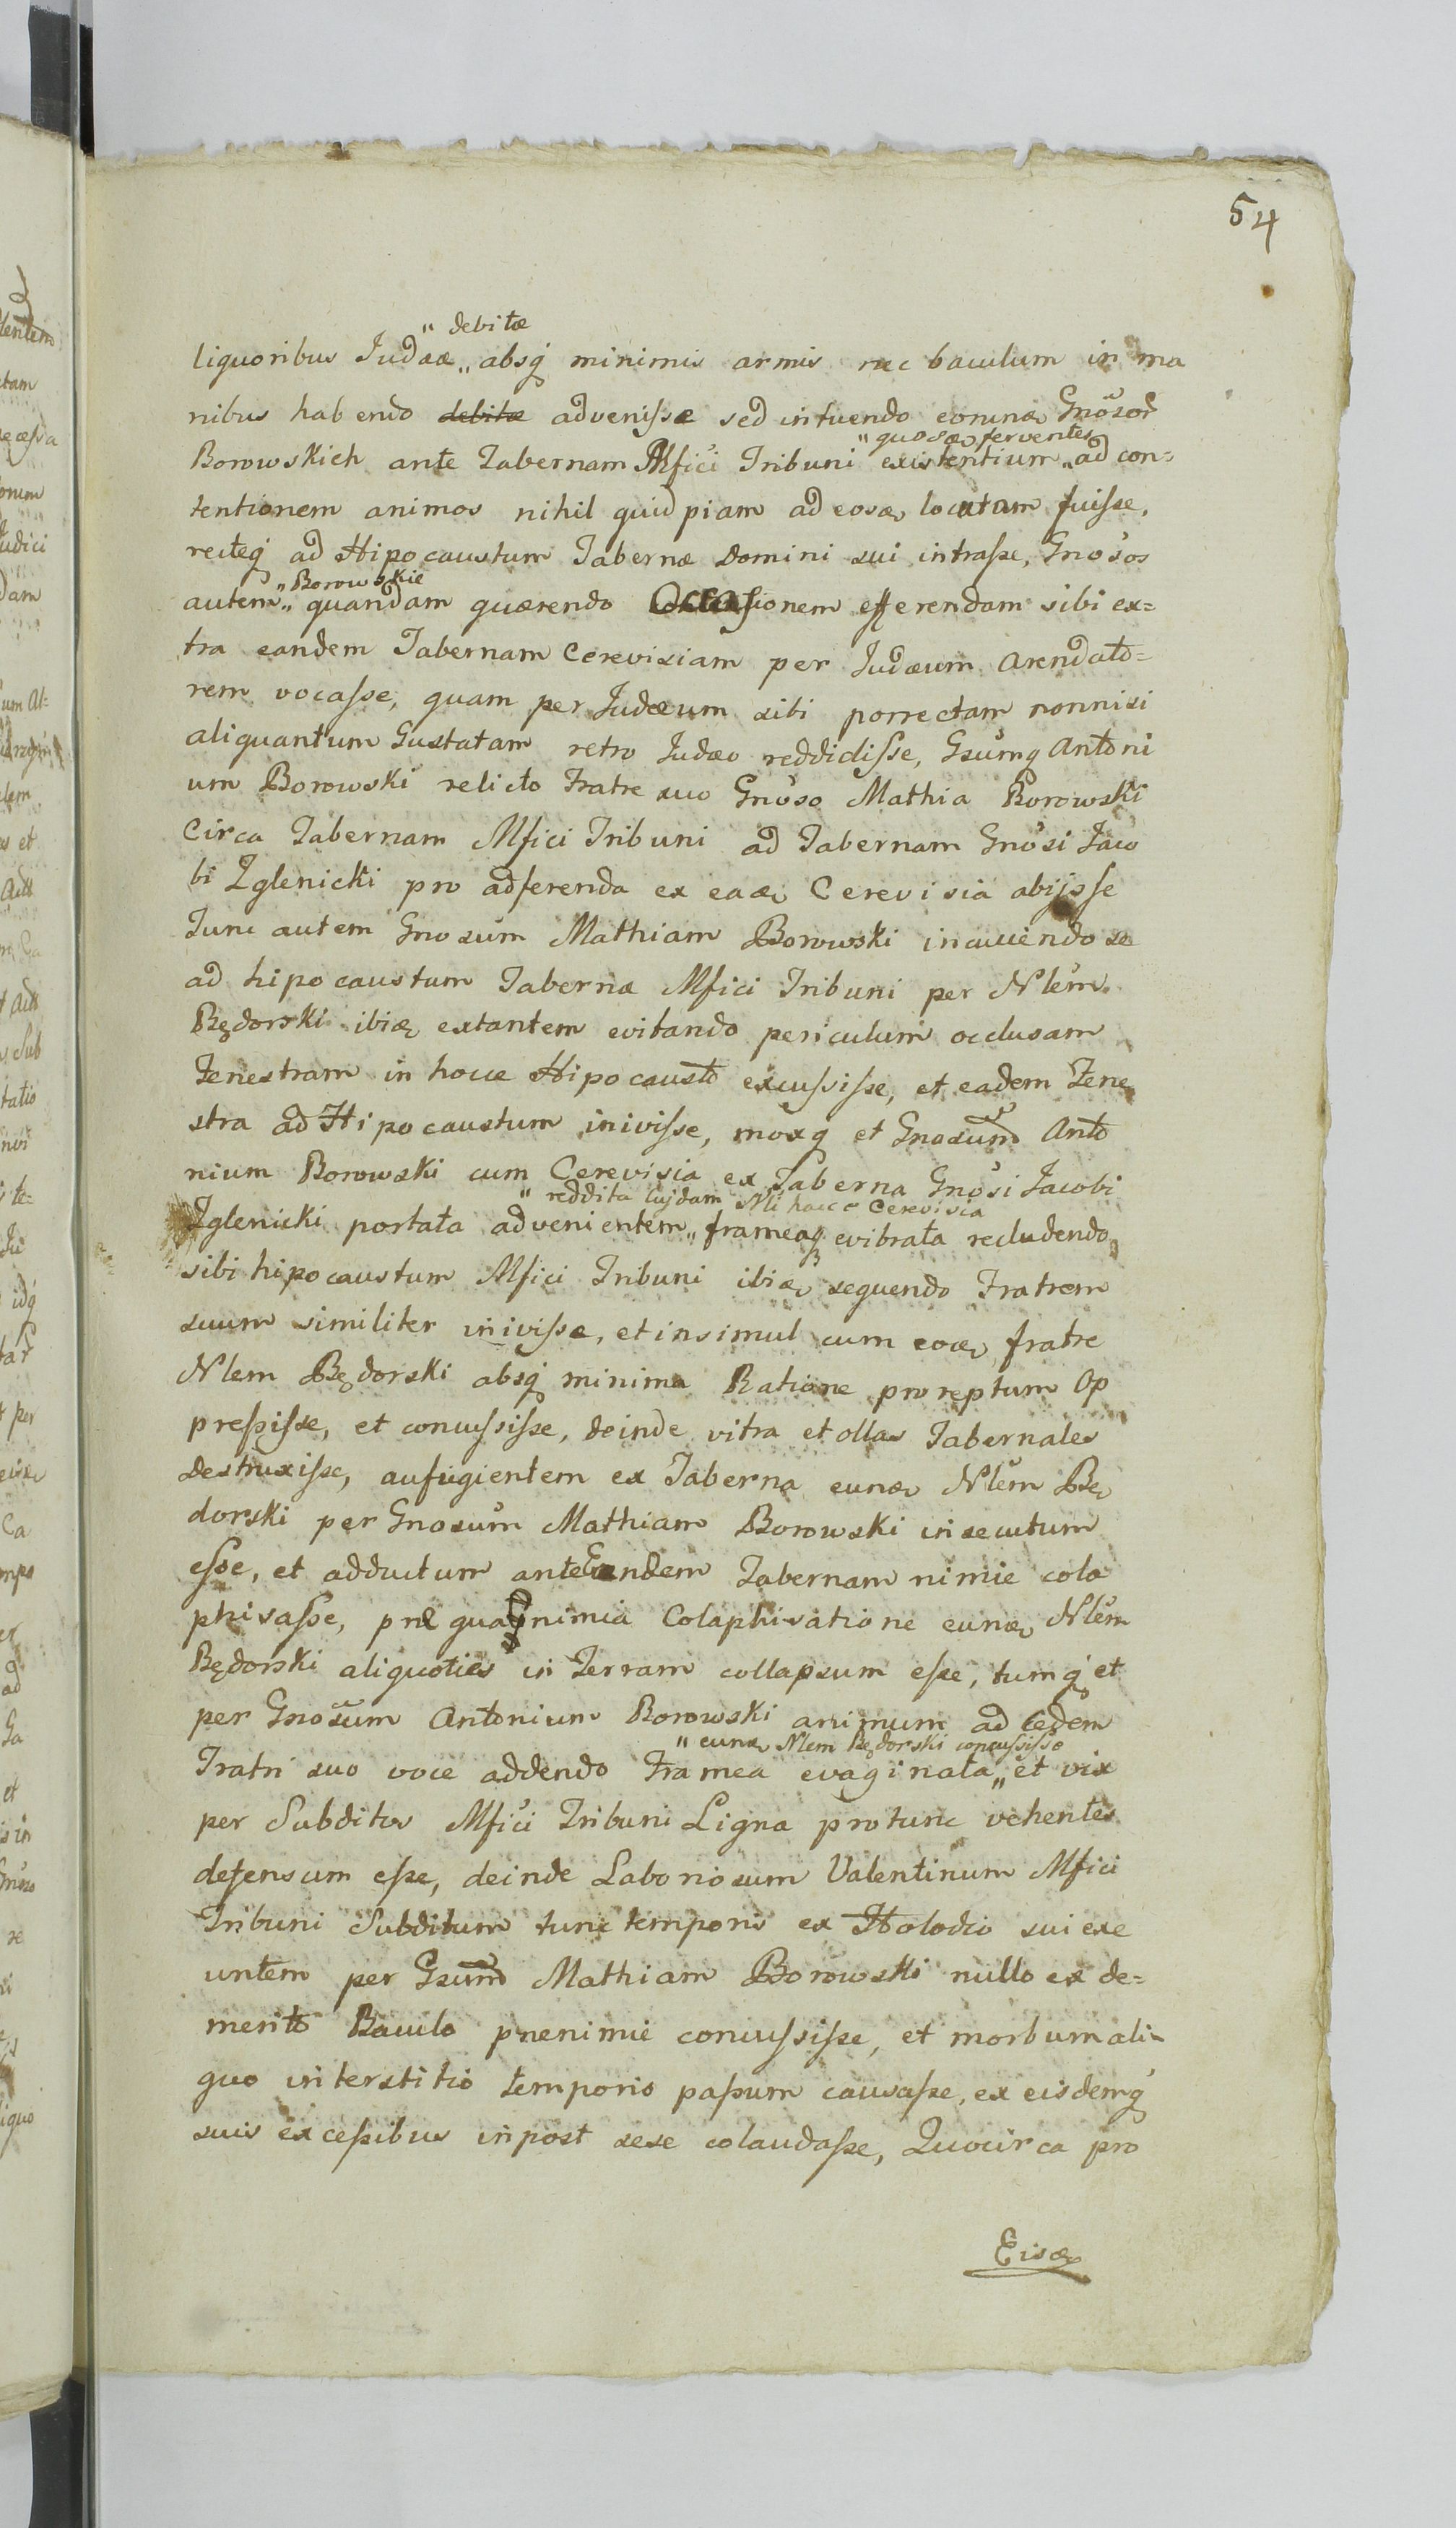 54
" debitæ
liquoribus Judææ „ absq́ minimis armis nec baculum in ma
nibus habendo debitæ advenisse sed intuendo eorunæ Gnősor
"quosæ ferventes
Borowskich ante Tabernam Mfici Tribuni existentium „ ad con=
tentionem animos nihil quidpiam ad eosæ locutam fuisse,
recteq́ ad Hipocaustum Tabernæ Domini sui intrasse, Gnősos
" Borowskie
autem „ quandam quærendo Occasionem efferendam sibi ex=
tra eandem Tabernam Cerevisiam per Judæum Arendato=
rem vocasse, quam per Judæum sibi porrectam nonnisi
aliquantum Gustatam retro Judæo reddidisse, Gsumq Antoni
um Borowski relicto Fratre suo Gnőso Mathia Borowski
Circa Tabernam Mfici Tribuni ad Tabernam Gnősi Jaco
bi Zglenicki pro adferenda ex eaæ Cerevisia abijsse
Tunc autem Gnosum Mathiam Borowski incutiendo se
ad hipocaustum Tabernæ Mfici Tribuni per Nlem
Będorski ibiæ extantem evitando periculum occlusam
Fenestram in hocce Hipocausto excussisse, et eadem Fene
stra ad Hipocaustum inivisse, moxq et Gnosum Anto
nium Borowski cum Cerevisia ex Taberna Gnősi Jacobi
" reddita Cujdam Nli hacce Cerevisia
Zglenicki portata advenientem „ frameaq evibrata recludendo
sibi hipocaustum Mfici Tribuni ibiæ sequendo Fratrem
suum similiter inivisse, et insimul cum eoæ fratre
Nlem Będorski absq́ minima Ratione proreptum Op
pressisse, et concussisse, deinde vitra et ollas Tabernales
destruxisse, aufugientem ex Taberna eunæ Nlem Bę
dorski per Gnosum Mathiam Borowski insecutum
esse, et adductum ante Eandem Tabernam nimie cola
phisasse, pnł qua nimia Colaphisatione eunæ Nlem
Będorski aliquoties in Terram collapsum esse, tumq́ et
per Gnősum Antonium Borowski animum ad Cedem
" eunæ Nlem Będorski concussisse
Fratri suo voce addendo Framea evaginata „ et vix
per Subditos Mfici Tribuni Ligna protunc vehentes
defensum esse, deinde Laboriosum Valentinum Mfici
Tribuni Subditum tunc temporis ex Holodio sui exe
untem per Gsum Mathiam Borowski nullo ex de=
merito Baculo pnenimie concussisse, et morbum ali=
quo interstitio temporis passum causasse, ex eisdemq́
suis excessibus inpost sese colaudasse, Quocirca pro
Eisæ